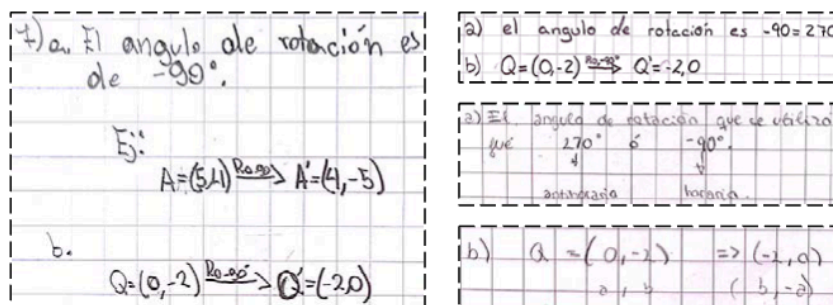 7) a. El angulo de rotación es
de -90°.
Ej:
A=(5,4) R0,-90 > A'=(4,-5)
b.
Q=(0,-2) R0-90° > Q'=(-2,0)
a) el angulo de rotación es -90=270
b) Q=(0,-2) R0,-90° > Q'=-2,0
a) El angulo de rotación que se utilizo
fué 270° ó -90°.
antihoraria horaria.
b) Q =(0,-2) => (-2,0)
a, b (b,-a)